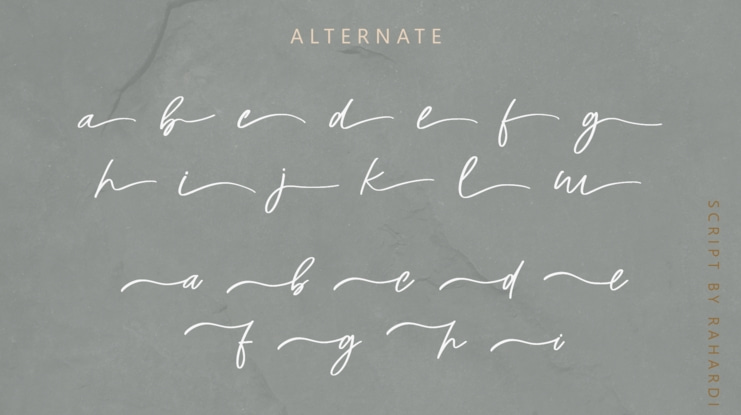 ALTERNATE
a b c d e f g
h i j k l m
a b c d e
f g h i
SCRIPT BY RAHARDI